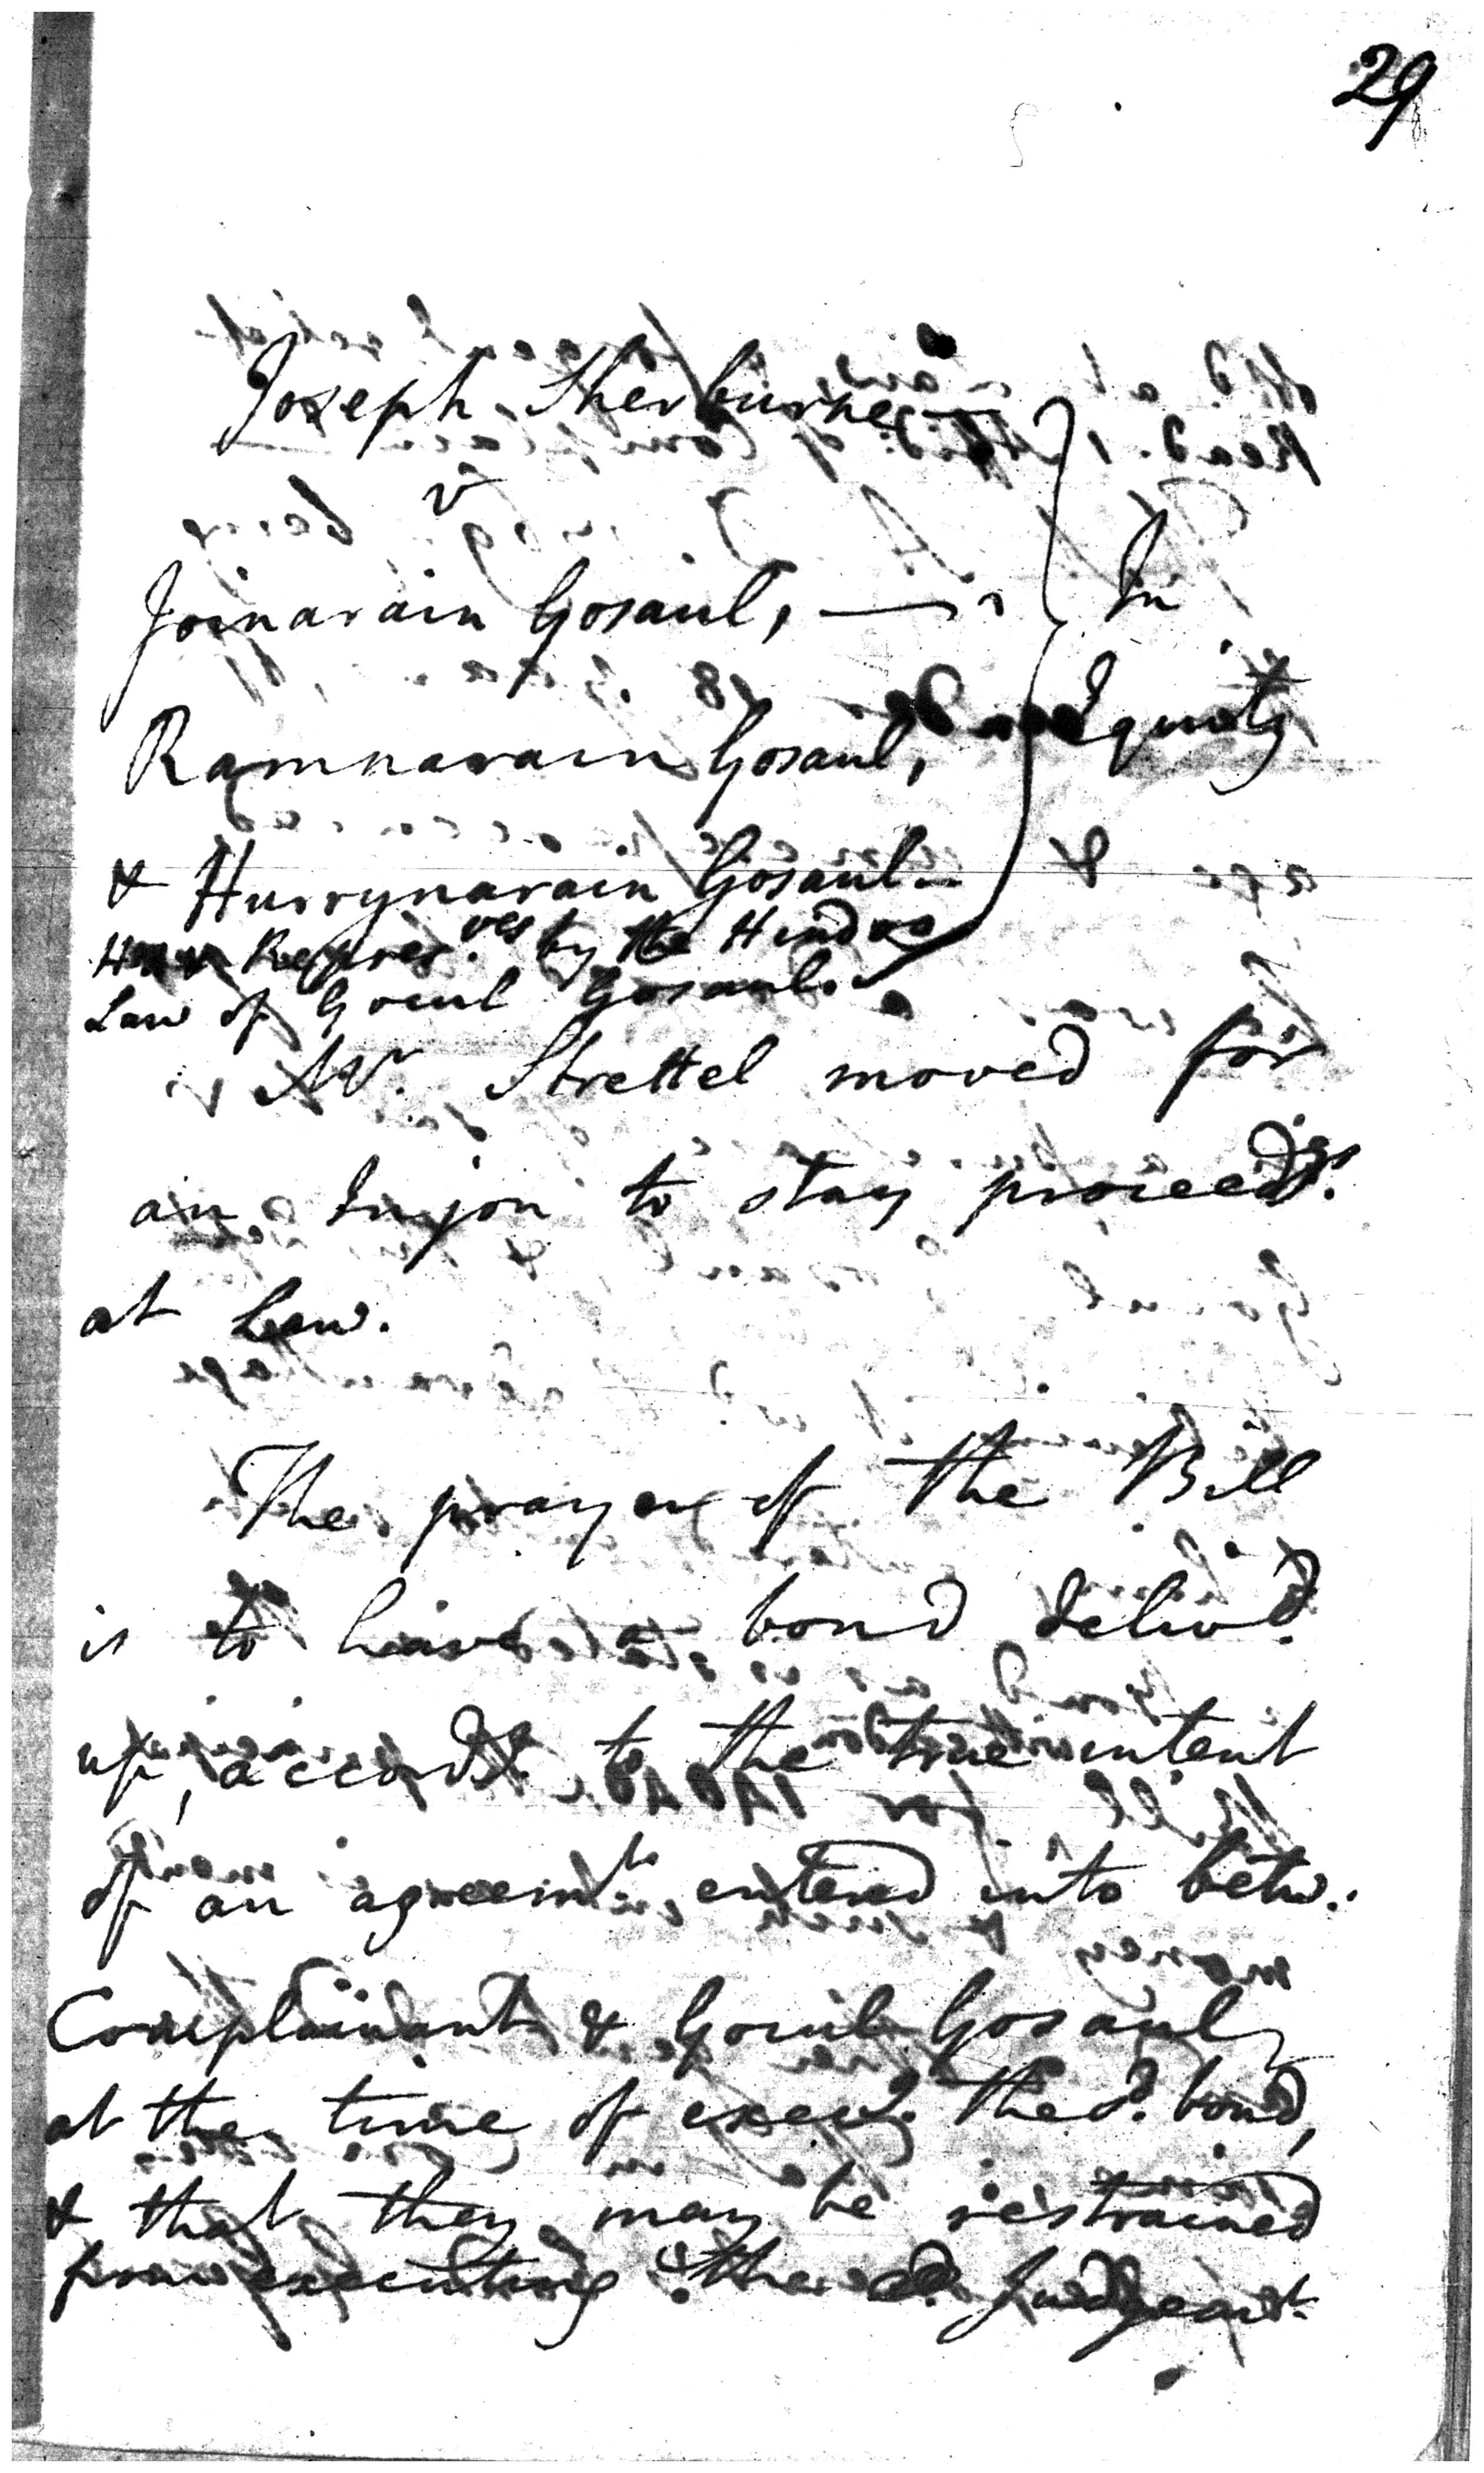 29
Joseph Sherburne
v
Joinarain Gosaul, — In
Ramnarain Gosaul, Equity
& Hurrynarain Gosaul
Repres.ves by the Hindoo
Law of Gocul Gosaul.
Mr. Strettel moved for
an Injon to stay proceedgs.
at Law.
The prayer of the Bill
is to have a bond delivd.
up, accordg. to the true intent
of an agreemt. entered into betw.
Complainant & Gocul Gosaul,
at the time of execg. the sd. bond,
& that they may be restrained
from executing the sd. Judgemt.